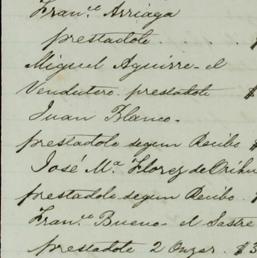 Fran.co Arriaga
prestadole . . . . $
Miguel Aguirre - el
Vendutero - prestadole $
Juan Blanco -
prestadole segun Recibo $
José M.a Florez de Orihu
prestadole segun Recibo . $
Fran.co Bueno - el Sastre
prestadole 2 Onzas . $3